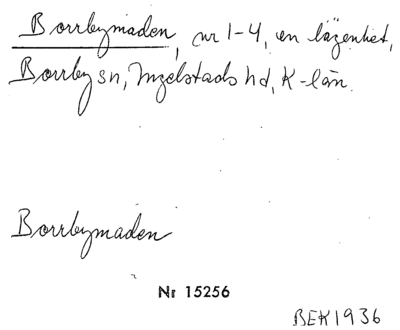 Borrbymaden, nr 1-4, en lägenhet,
Borrby sn, Ingelstads hd, K-län.
Borrbymaden
Nr 15256
BEK1936